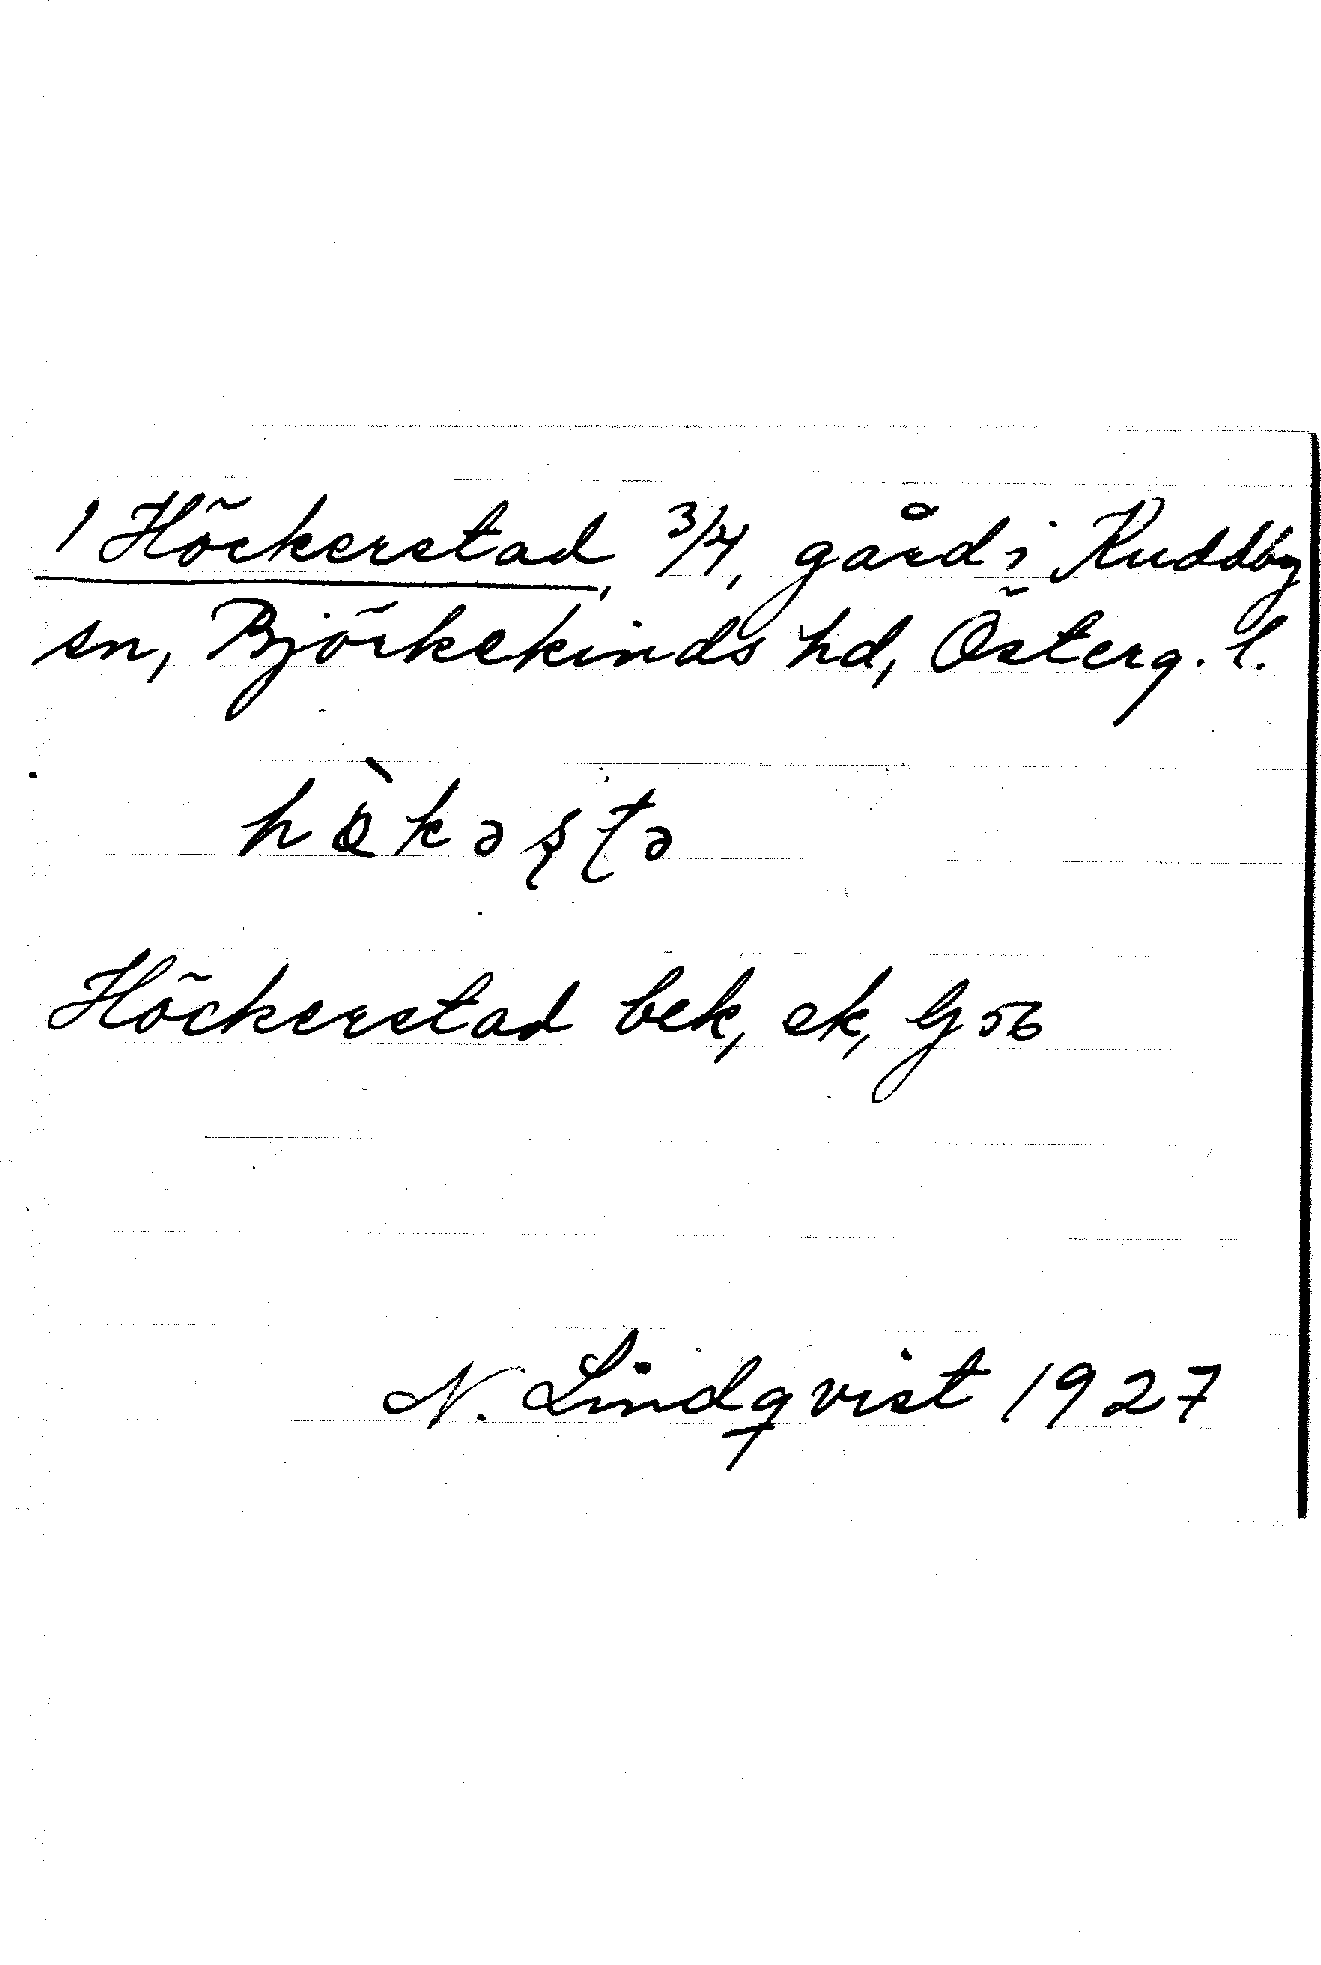 1 Höckerstad, 3/4, gård i Kuddby
sn, Björkekinds hd, Österg. l.
hö̀kəʂʈə
Höckerstad bek, ek, G 56
N. Lindqvist 1927